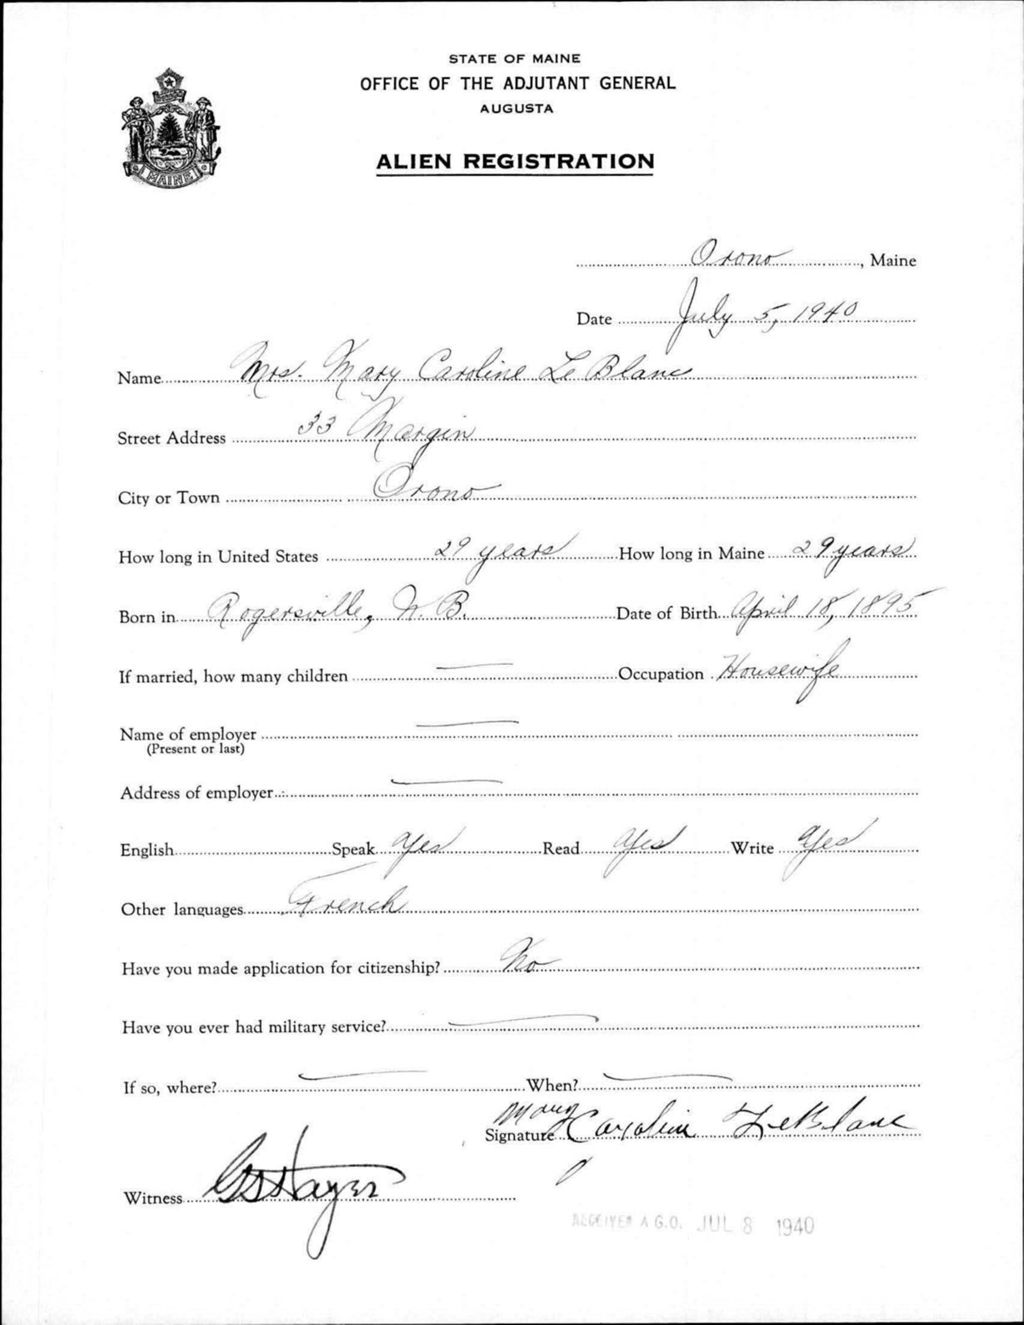 STATE OF MAINE
OFFICE OF THE ADJUTANT GENERAL
AUGUSTA
ALIEN REGISTRATION
MAINE
Orono, Maine
Date July 5, 1940
Name Mrs. Mary Caroline Le Blanc
Street Address 33 Margin
City or Town Orono
How long in United States 29 years How long in Maine 29 years
Born in Rogersville, N. B. Date of Birth April 18, 1895
If married, how many children — Occupation Housewife
Name of employer —
(Present or last)
Address of employer —
English Speak Yes Read Yes Write Yes
Other languages French
Have you made application for citizenship? No
Have you ever had military service? —
If so, where? — When? —
Signature Mary Caroline LeBlanc
Witness
RECEIVED A.G.O. JUL 8 1940